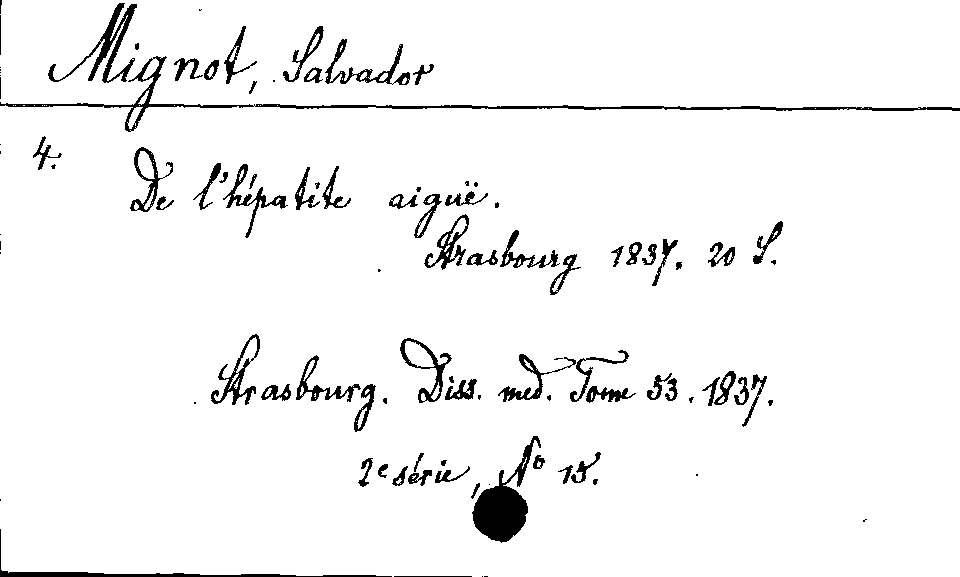 Mignot, Salvador
4.
De l'hépatite aiguë.
Strasbourg 1837. 20 S.
Strasbourg. Diss. med. Tome 53. 1837.
2e série, No 15.